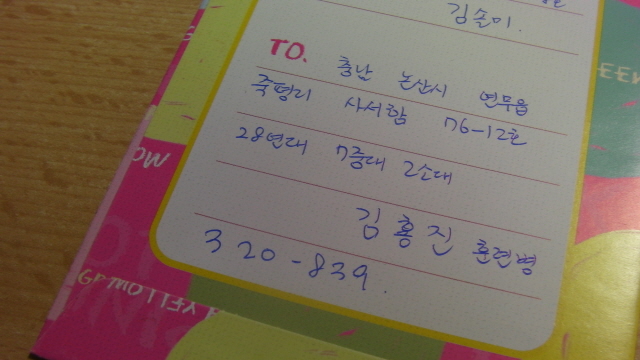 김솔미.
TO.
충남 논산시 연무읍
죽평리 사서함 76-12호
28연대 7중대 2소대
김홍진 훈련병
320-839.
YELLOW